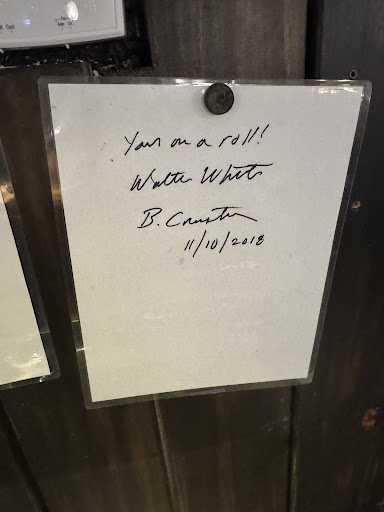 Your on a roll!
Walter White
B. Cranston
11/10/2018